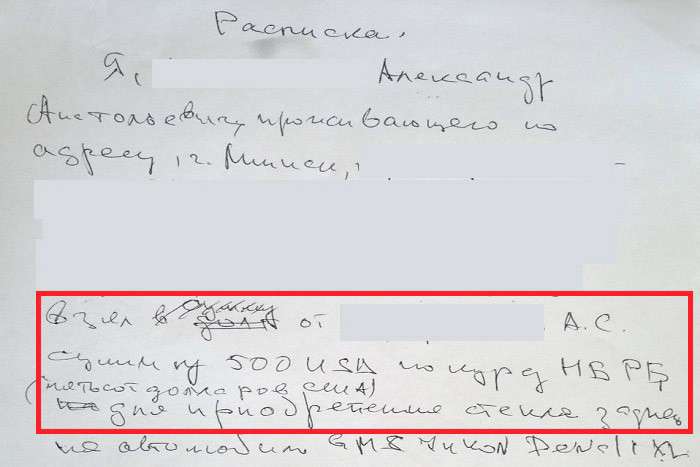 Расписка.
Я, Александр
Анатольевич, проживающего по
адресу, г. Минск,
взял в от А.С.
сумму 500 USD по курсу НБ РБ
(пятьсот долларов США)
для приобретение стекла заднее
на автомобиль GMS Юкон Denali XL